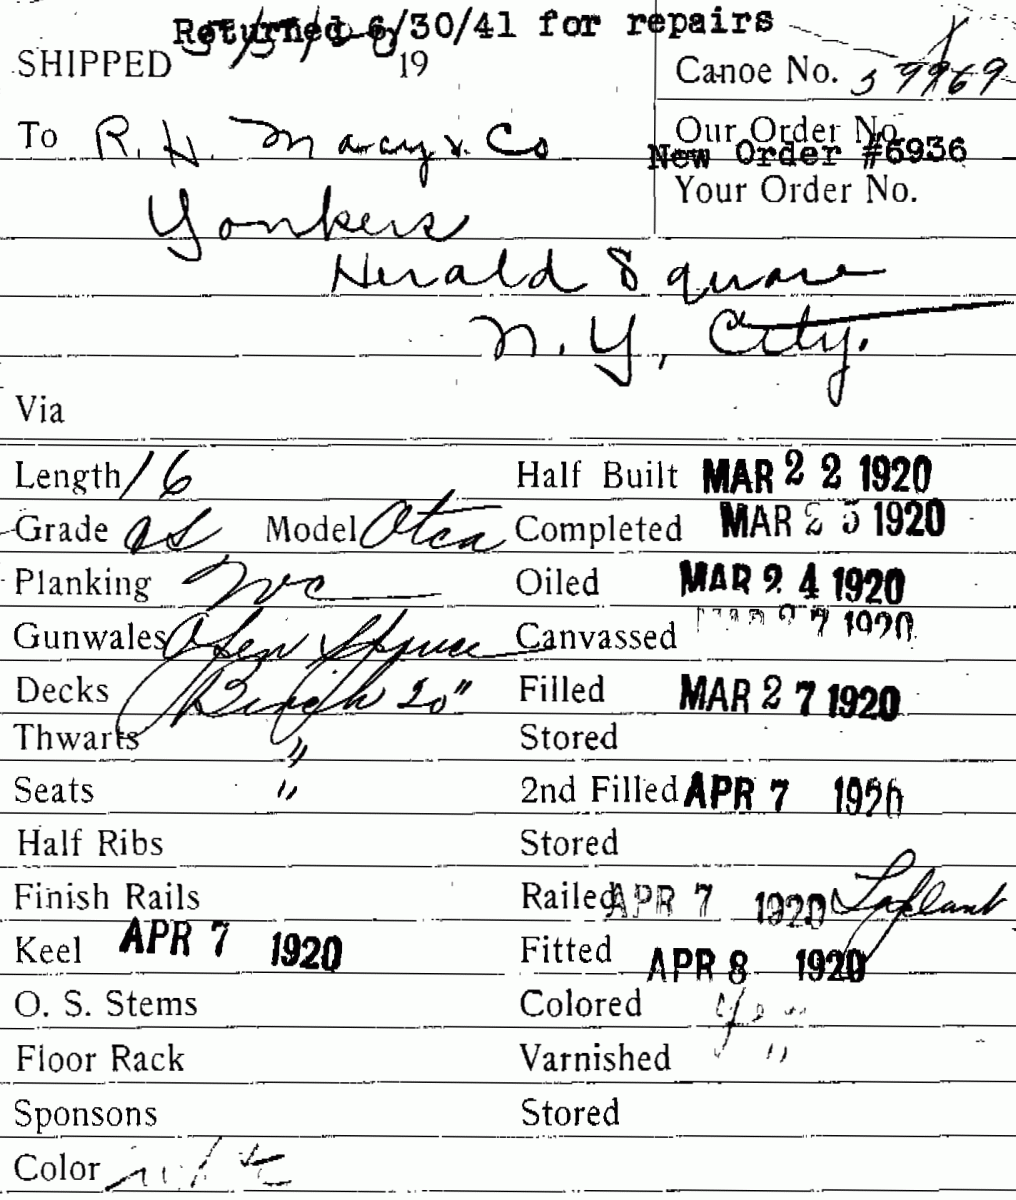 Returned 6/30/41 for repairs
SHIPPED 19
Canoe No. 59969
To R. H. Macy & Co
Our Order No.
New Order #6936
Your Order No.
Yonkers
Herald Square
N. Y. City.
Via
Length 16 Half Built MAR 22 1920
Grade AS Model Otca Completed MAR 23 1920
Planking WC Oiled MAR 24 1920
Gunwales Open Spruce Canvassed MAR 27 1920
Decks Birch 20" Filled MAR 27 1920
Thwarts " Stored
Seats " 2nd Filled APR 7 1920
Half Ribs Stored
Finish Rails Railed APR 7 1920 Laplant
Keel APR 7 1920 Fitted APR 8 1920
O. S. Stems Colored
Floor Rack Varnished "
Sponsons Stored
Color